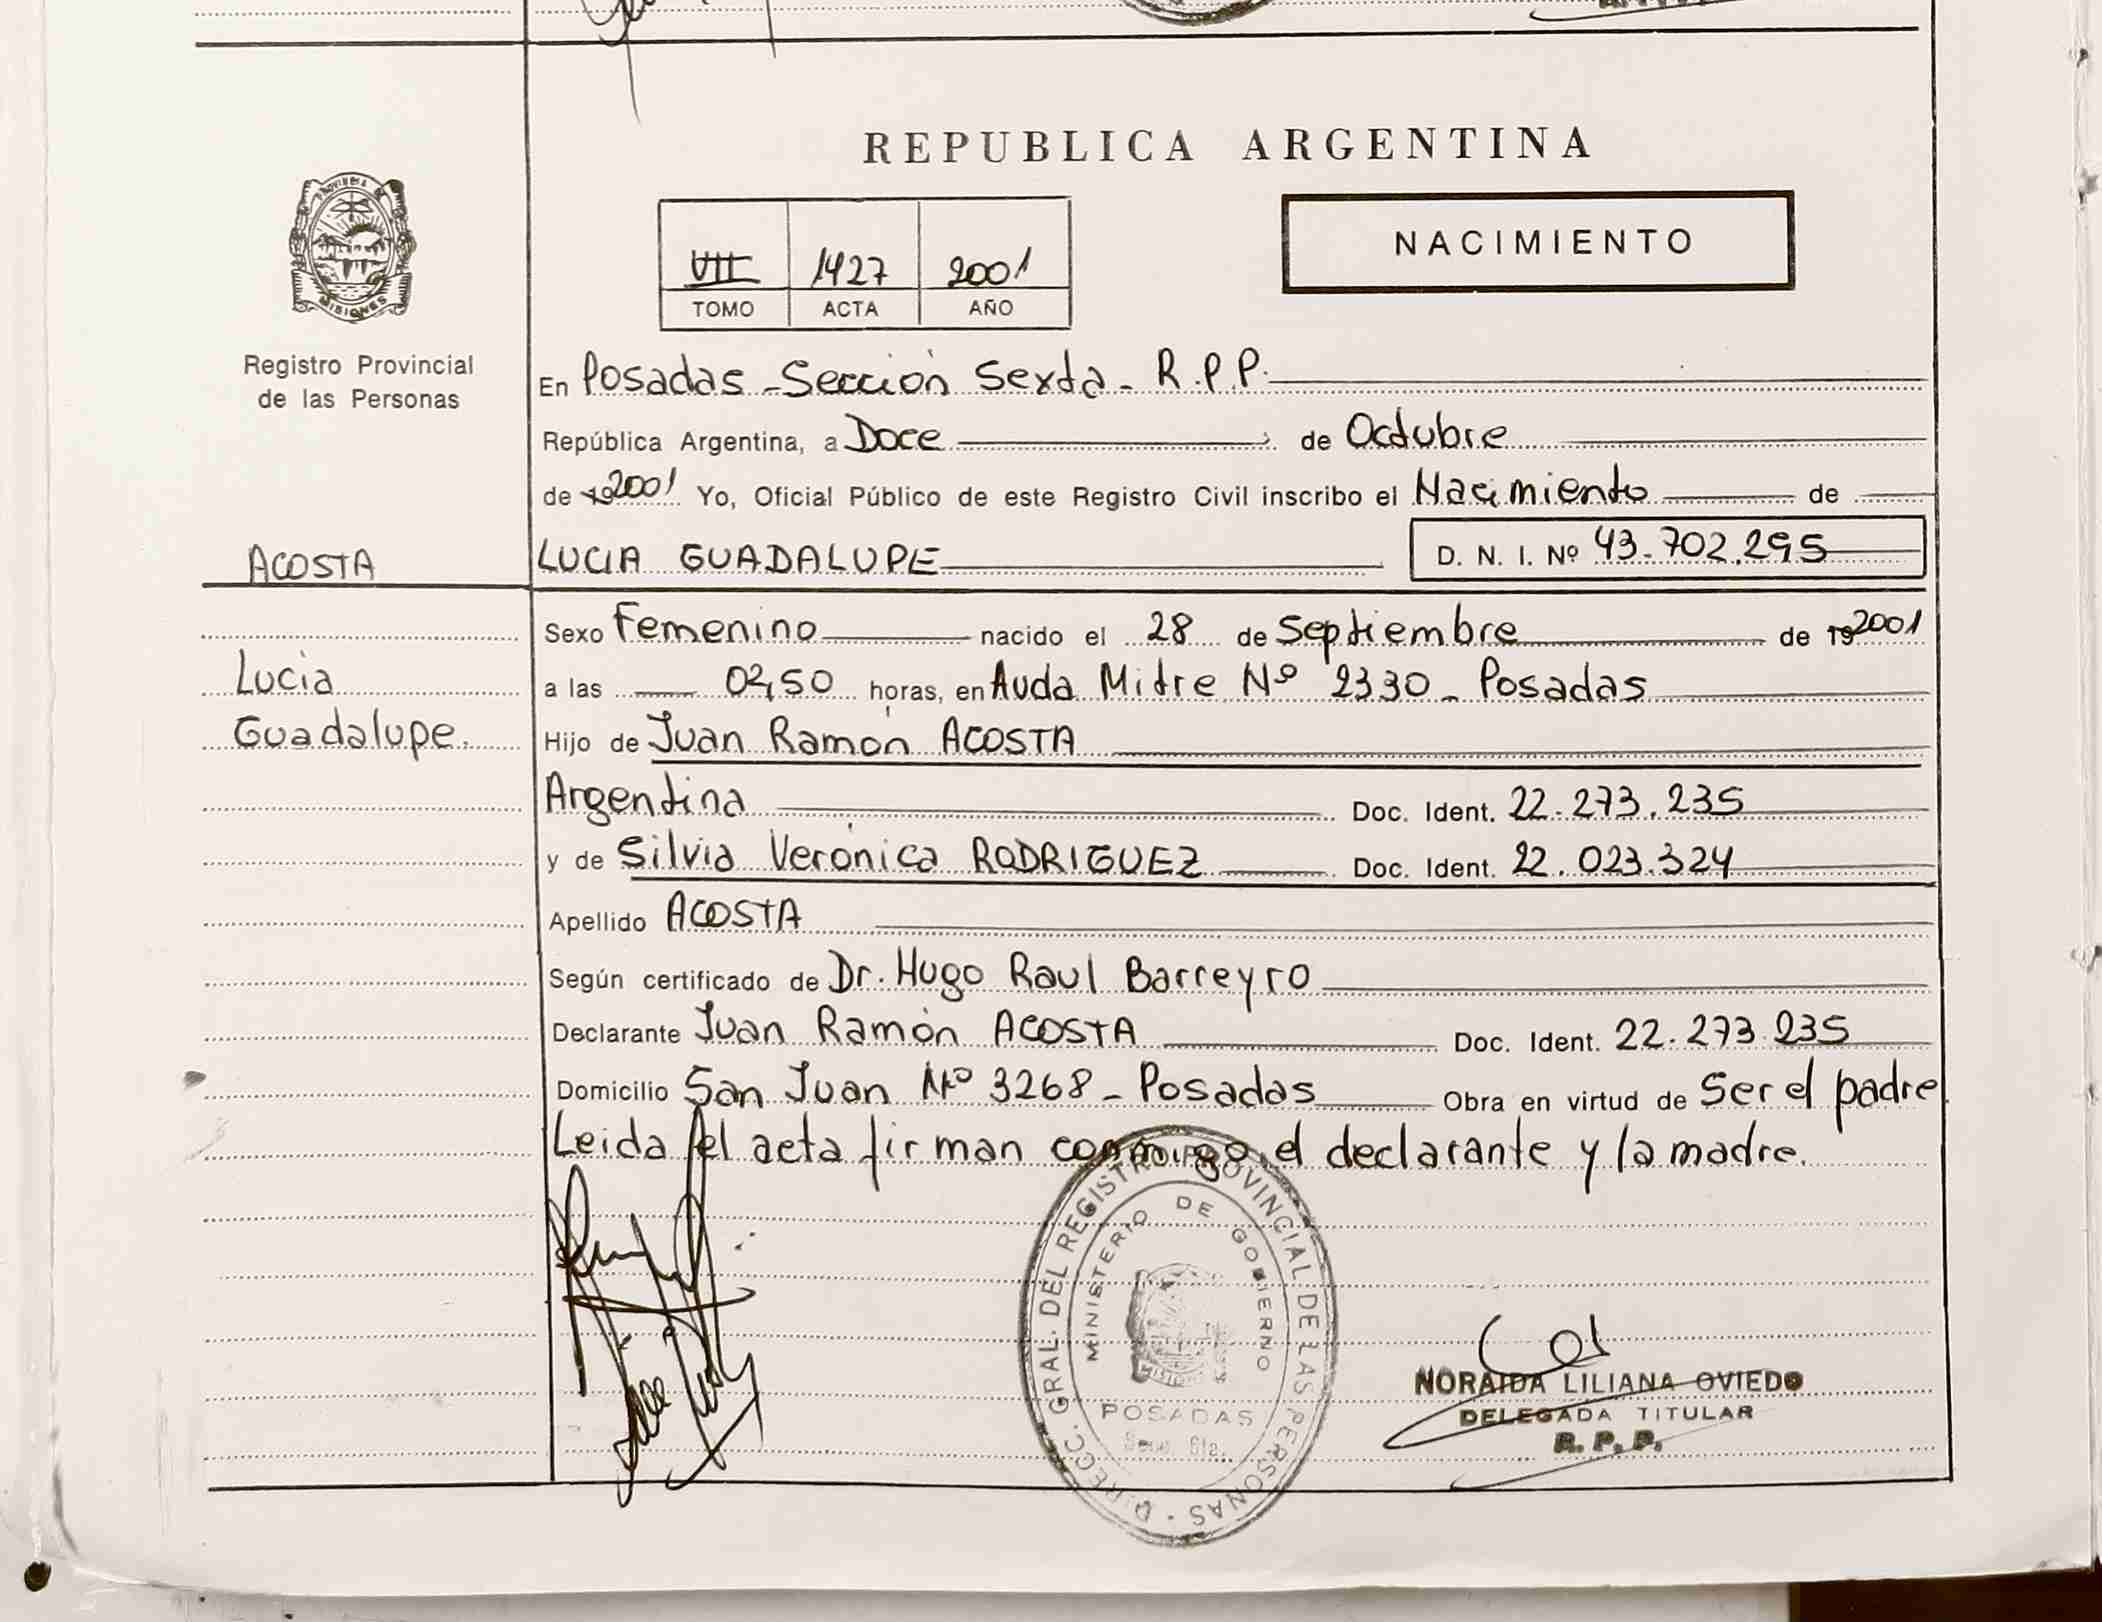 REPUBLICA ARGENTINA
PROVINCIA DE
MISIONES
Registro Provincial
de las Personas
VII 1427 2001
TOMO ACTA AÑO
NACIMIENTO
En Posadas - Sección Sexta - R.P.P.
República Argentina, a Doce de Octubre
de 19 2001 Yo, Oficial Público de este Registro Civil inscribo el Nacimiento de
ACOSTA
LUCIA GUADALUPE D. N. I. Nº 43.702.295
Lucia
Guadalupe.
Sexo Femenino nacido el 28 de Septiembre de 19 2001
a las 02,50 horas, en Avda Mitre Nº 2330 - Posadas
Hijo de Juan Ramón ACOSTA
Argentina Doc. Ident. 22.273.235
y de Silvia Verónica RODRIGUEZ Doc. Ident. 22.023.324
Apellido ACOSTA
Según certificado de Dr. Hugo Raul Barreyro
Declarante Juan Ramón ACOSTA Doc. Ident. 22.273.235
Domicilio San Juan Nº 3268 - Posadas Obra en virtud de Ser el padre
Leida el acta firman conmigo el declarante y la madre.
DIRECC. GRAL. DEL REGISTRO PROVINCIAL DE LAS PERSONAS
MINISTERIO DE GOBIERNO
POSADAS
Secc. 6ta.
NORAIDA LILIANA OVIEDO
DELEGADA TITULAR
R. P. P.